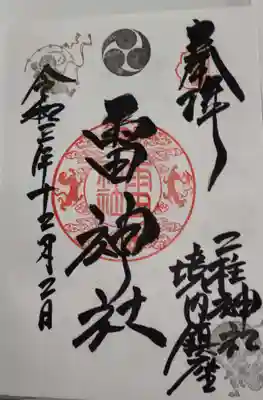 奉拝
二柱神社
境内鎮座
雷神社
令和三年十二月二日